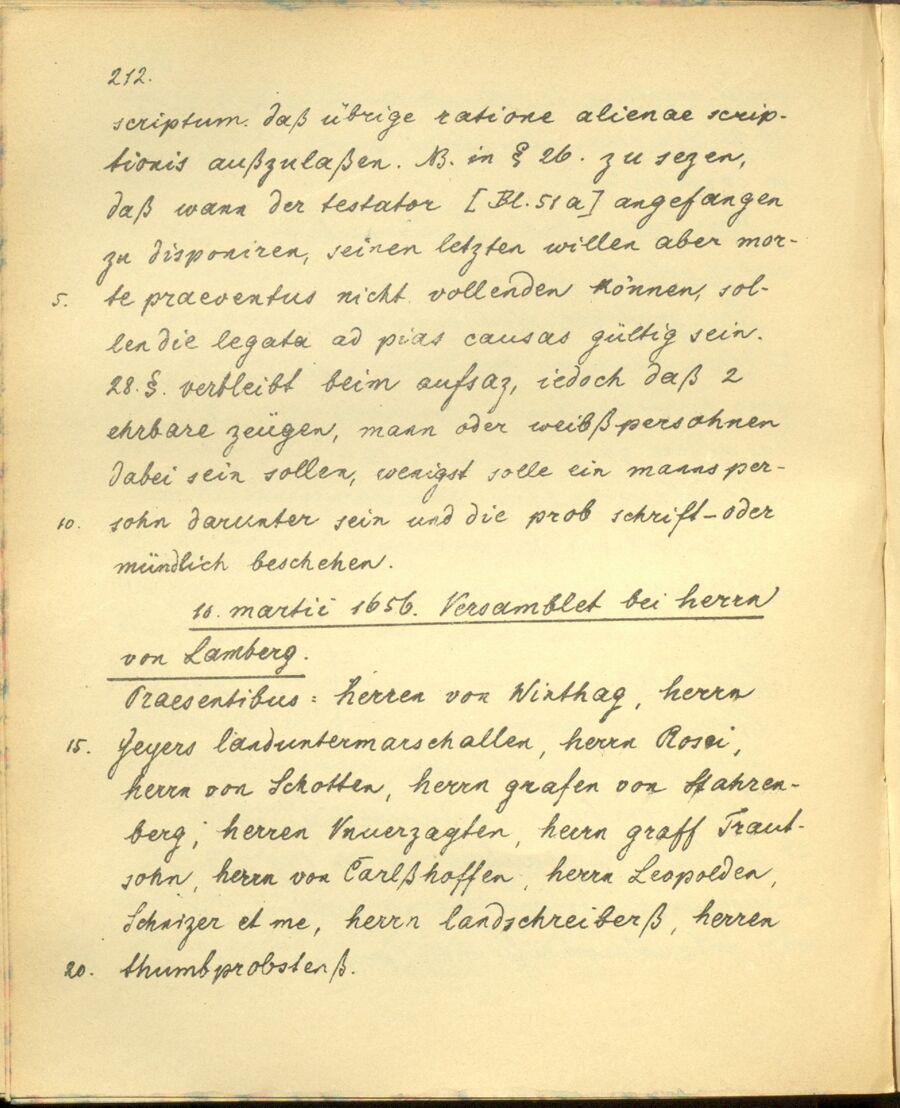 212.
scriptum. daß übrige ratione alienae scrip-
tionis außzulaßen. NB. in § 26. zu sezen,
daß wann der testator [Bl. 51a] angefangen
zu disponiren, seinen letzten willen aber mor-
5. te praeventus nicht vollenden können, sol-
len die legata ad pias causas gültig sein.
28. §. verbleibt beim aufsaz, iedoch daß 2
ehrbare zeügen, mann oder weibßpersohnen
dabei sein sollen, wenigst solle ein mannsper-
10. sohn darunter sein und die prob schrift- oder
mündlich beschehen.
11. martii 1656. Versamblet bei herrn
von Lamberg.
Praesentibus: herren von Winthag, herrn
15. Geyers landuntermarschallen, herrn Rosei,
herrn von Schotten, herrn grafen von Stahren-
berg, herren Vnuerzagten, herrn graff Traut-
sohn, herrn von Carlßhoffen, herrn Leopolden,
Schnizer et me, herrn landschreiberß, herren
20. thumbprobstenß.